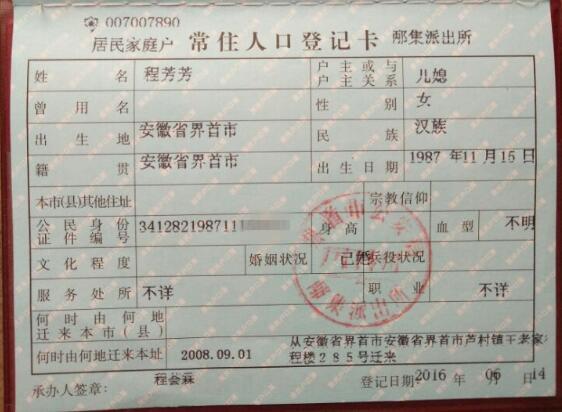 007007890
居民家庭户 常住人口登记卡 邴集派出所
姓 名 程芳芳 户主或与户主关系 儿媳
曾用名 性别 女
出生地 安徽省界首市 民族 汉族
籍贯 安徽省界首市 出生日期 1987 年 11 月 15 日
本市(县)其他住址 宗教信仰
公民身份证件编号 341282198711 身高 血型 不明
文化程度 婚姻状况 已婚 兵役状况
服务处所 不详 职业 不详
何时由何地迁来本市(县)
何时由何地迁来本址 2008.09.01 从安徽省界首市安徽省界首市芦村镇王老家
程楼285号迁来
承办人签章: 登记日期: 2016 年 06 月 14
邴集派出所